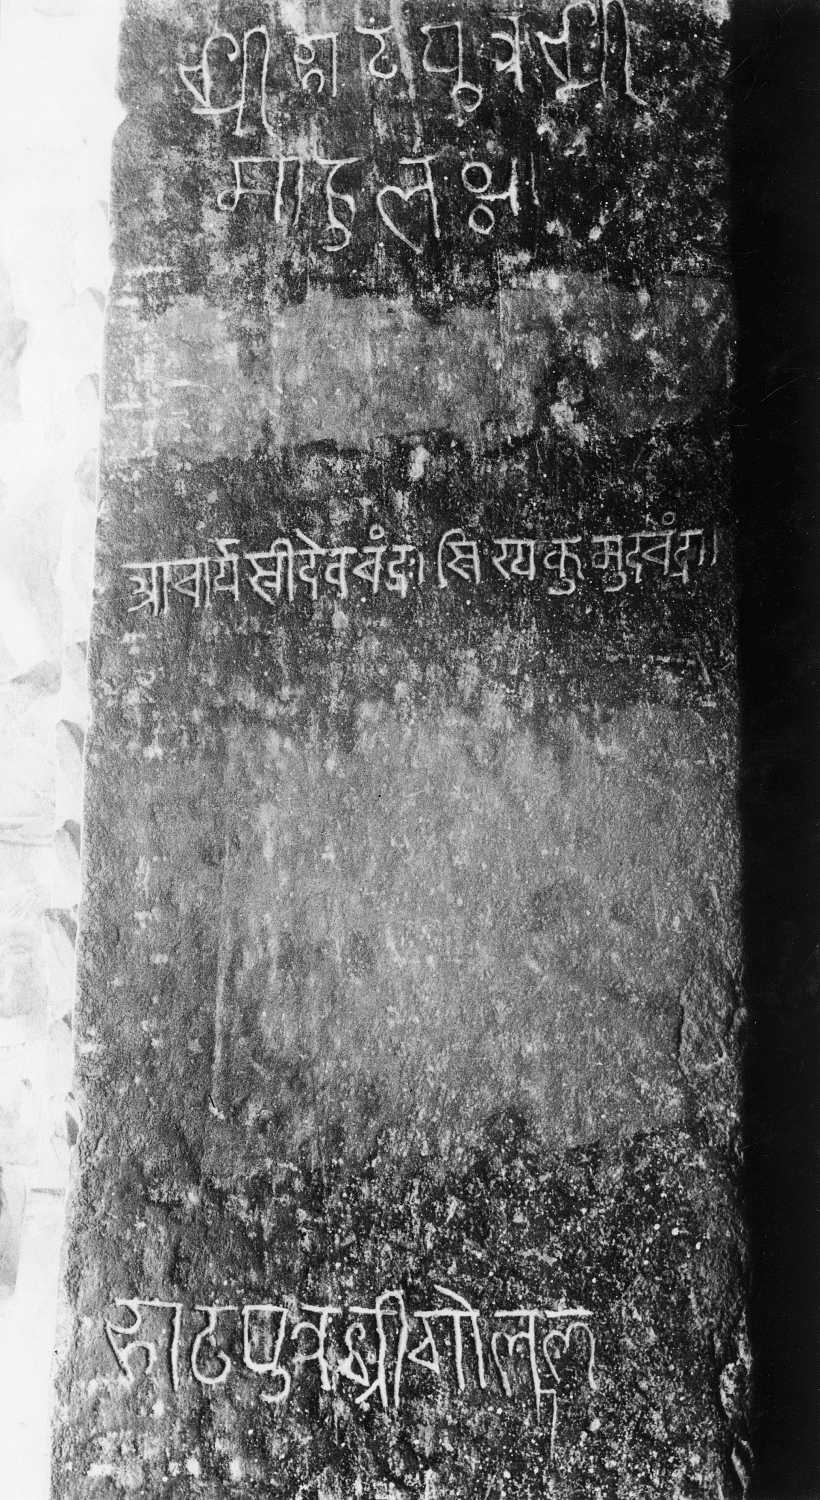 श्री हाटपुत्रश्री
माहुल
आचार्य श्रीदेवचंद्रः। सिष्य कुमुदचंद्रः।
हाटपुत्र श्रीगोलल